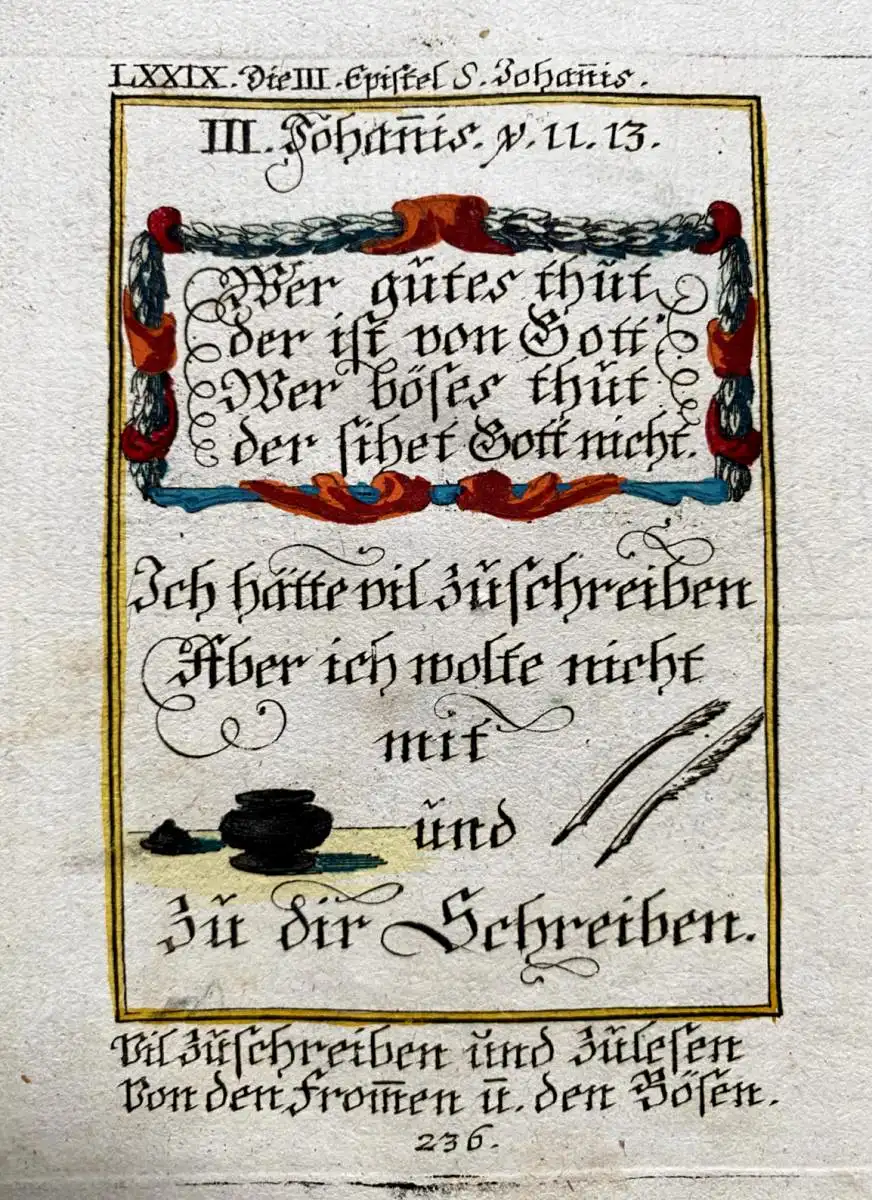 LXXIX. Die III. Epistel S. Johan̄is.
III. Johan̄is. v. 11. 13.
Wer gŭtes thŭt
der ist von Gott
Wer böses thŭt
der sihet Gott nicht.
Ich hätte vil zŭschreiben
Aber ich wolte nicht
mit
ŭnd
Zŭ dir Schreiben.
Vil Zŭschreiben ŭnd Zŭlesen
Von den From̄en ū. den Bösen.
236.